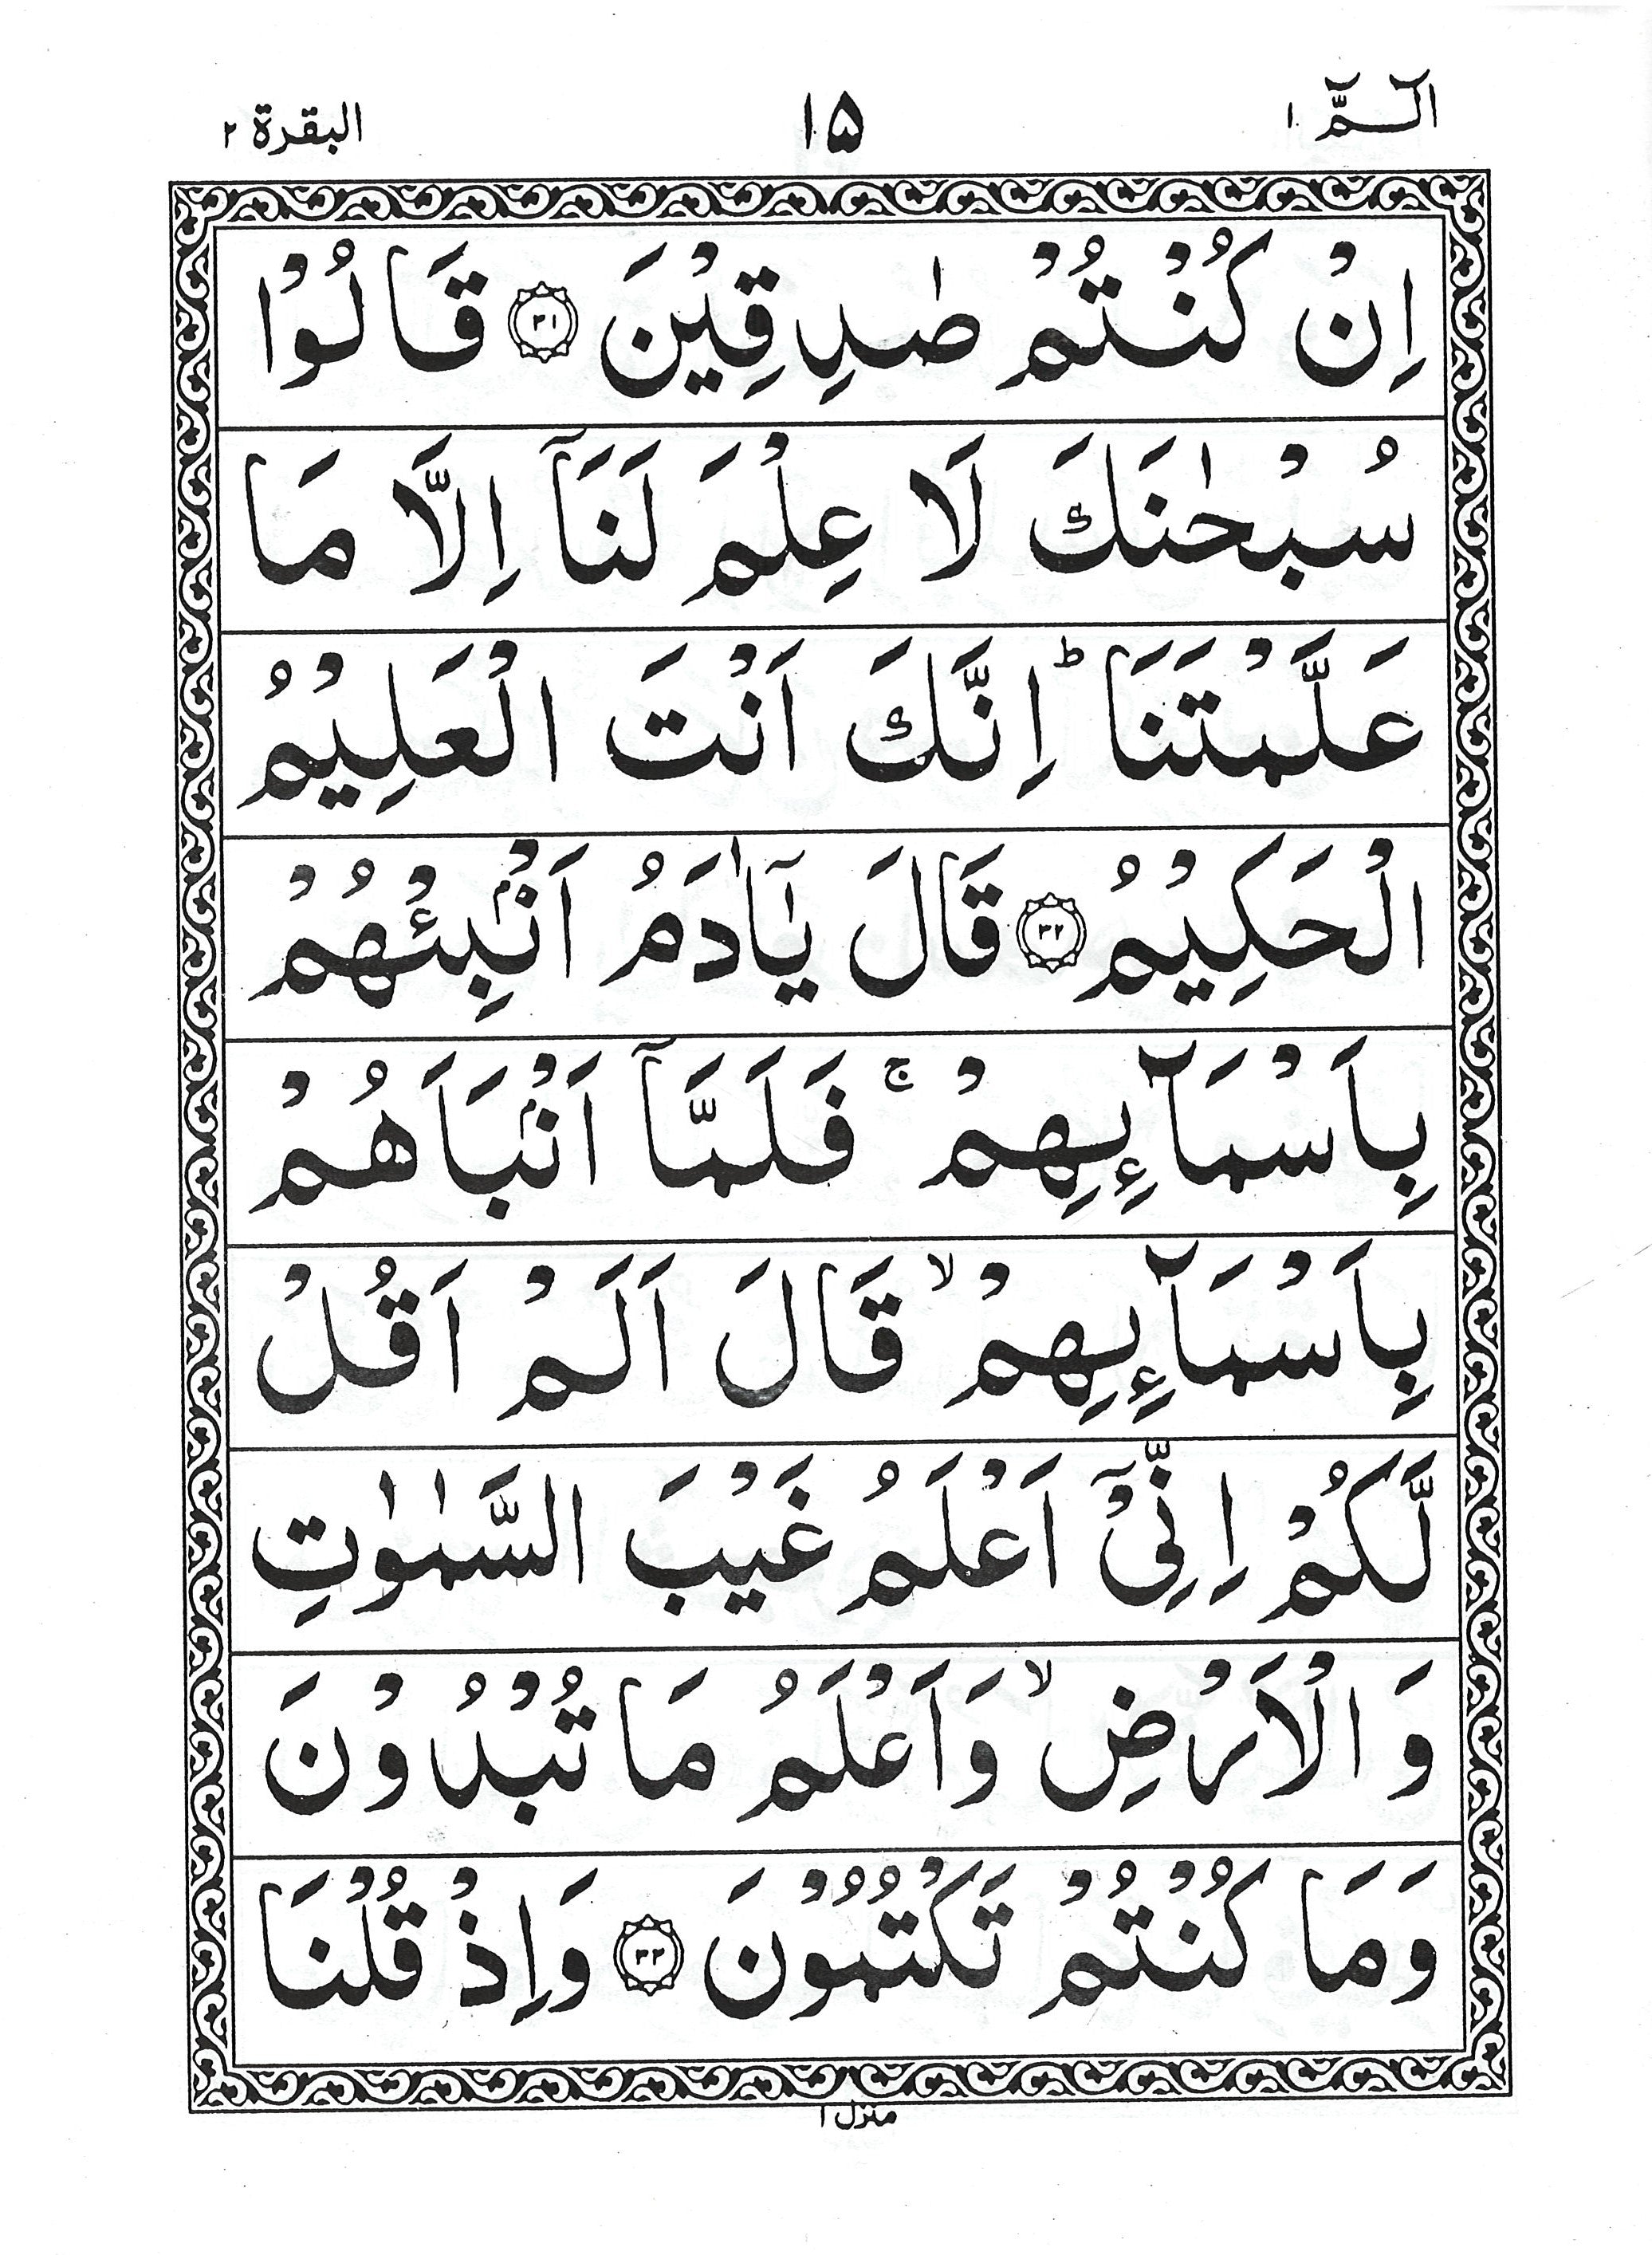 الٓـمّٓ ١
١٥
البقرة ٢
اِنْ كُنْتُمْ صٰدِقِيْنَ ﴿٣١﴾ قَالُوْا
سُبْحٰنَكَ لَا عِلْمَ لَنَآ اِلَّا مَا
عَلَّمْتَنَا ؕ اِنَّكَ اَنْتَ الْعَلِيْمُ
الْحَكِيْمُ ﴿٣٢﴾ قَالَ يٰٓاٰدَمُ اَنْۢبِئْهُمْ
بِاَسْمَآئِهِمْ ۚ فَلَمَّآ اَنْۢبَاَهُمْ
بِاَسْمَآئِهِمْ ۙ قَالَ اَلَمْ اَقُلْ
لَّكُمْ اِنِّىْٓ اَعْلَمُ غَيْبَ السَّمٰوٰتِ
وَ الْاَرْضِ ۙ وَاَعْلَمُ مَا تُبْدُوْنَ
وَمَا كُنْتُمْ تَكْتُمُوْنَ ﴿٣٣﴾ وَاِذْ قُلْنَا
منزل ١